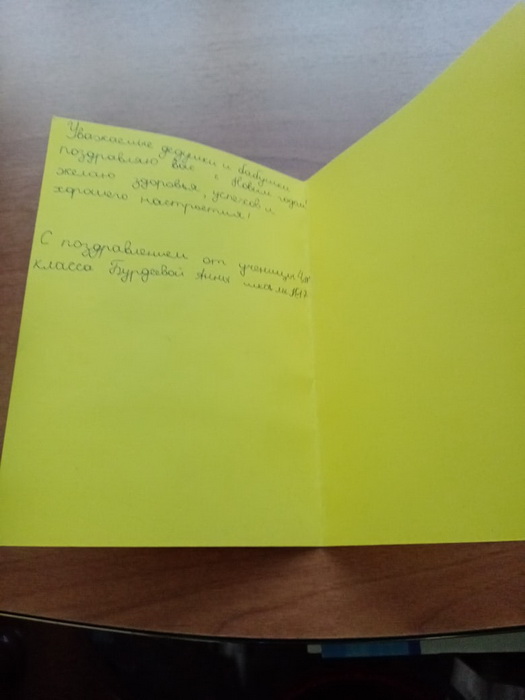 Уважаемые дедушки и бабушки
поздравляю вас с Новым годом!
желаю здоровья, успехов и
хорошего настроения!
С поздравлением от ученицы
класса Бурдаевой школы №17